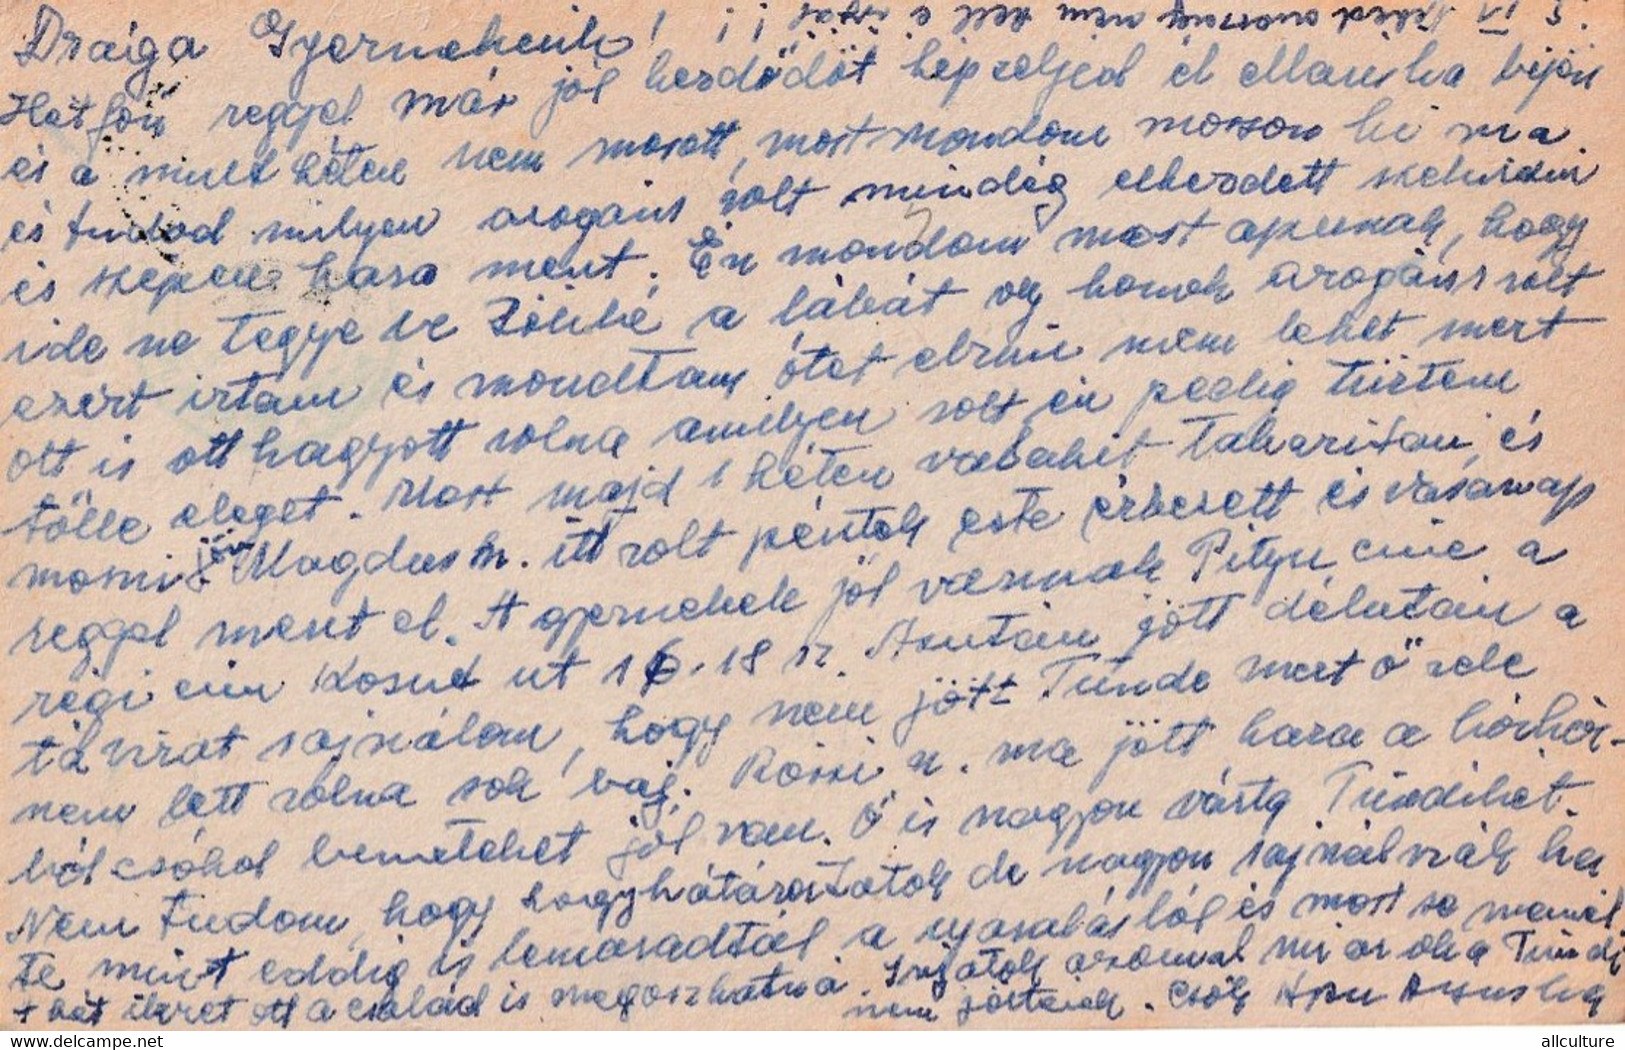 Drága Gyermekeink!
Hétfőn reggel már jól kezdődöt képzeljed el Mariska bijön
és a mult héten nem mosott, most mondom mosson ki ma
és tudod milyen arogáns volt mindég elkezdett
és szépen haza ment. Én mondom most apunak, hogy
ide ne tegye be többé a lábát oly arogáns volt
ezért irtam és mondtam ótet elvinni nem lehet mert
ott is ott hagyott volna amilyen volt én pedig türtem
tölle eleget. Most majd 1 héten takaritani, és
mosni jön Magdus n. itt volt péntek este érkezett és vasarnap
reggel ment el. A gyermekek jól vannak Pityu cime a
régi cim Kosut ut 16-18 sz. Azután jött délután a
távirat sajnálom, hogy nem jött Tünde mert ő vele
nem lett volna sok baj. Rózsi n. ma jött haza a kórház-
ból csókol benneteket jól van. Ő is nagyon várta Tündikét.
Nem tudom, hogy hogy határoztatok de nagyon sajnálnák ha
te mint eddig is lemaradtál a nyaralásból és most se mennél
+ két ott a család is megoszhatná. Irjátok azonnal mi az oka Tündi
nem jöttének. Csók Apu Anyuka